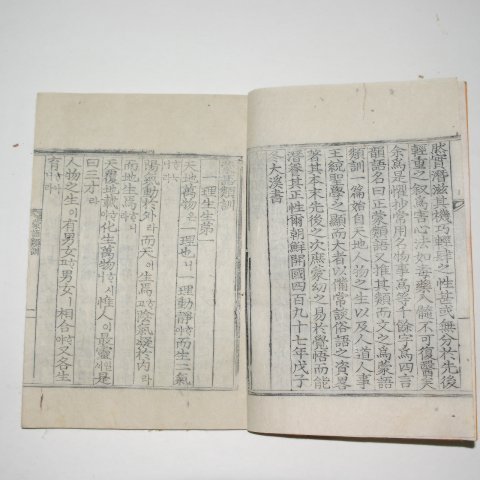 然實潛滋其機巧輕肆之性甚或無分於先後
輕重之叙爲害心法如毒藥入髓不可復醫矣
余爲是懼抄常用名物事爲等千餘字爲四言
韻語名曰正蒙類語又推其類而文之爲蒙語
類訓一篇始自天地人物之生以及人道人事
王統聖學之顯而大者以備常談俗語之資畧
著其本末先後之次庶蒙幼之易於覺悟而能
潛養其正性爾朝鮮開國四百九十七年戊子
冬大溪書
蒙語類訓
一理生生第一
天地萬物은一理也니一理動靜ᄒᆞ야而生二氣
陽氣動於外라而天이生焉ᄒᆞ고陰氣凝於內라
而地生焉ᄒᆞ니라
天覆地載ᄒᆞ야化生萬物ᄒᆞ니惟人이最靈일ᄉᆡ是
曰三才라
人物之生이有男女ᄒᆞ고男女ㅣ相合ᄒᆞ야又各生
育ᄒᆞ니라
蒙語類訓
一